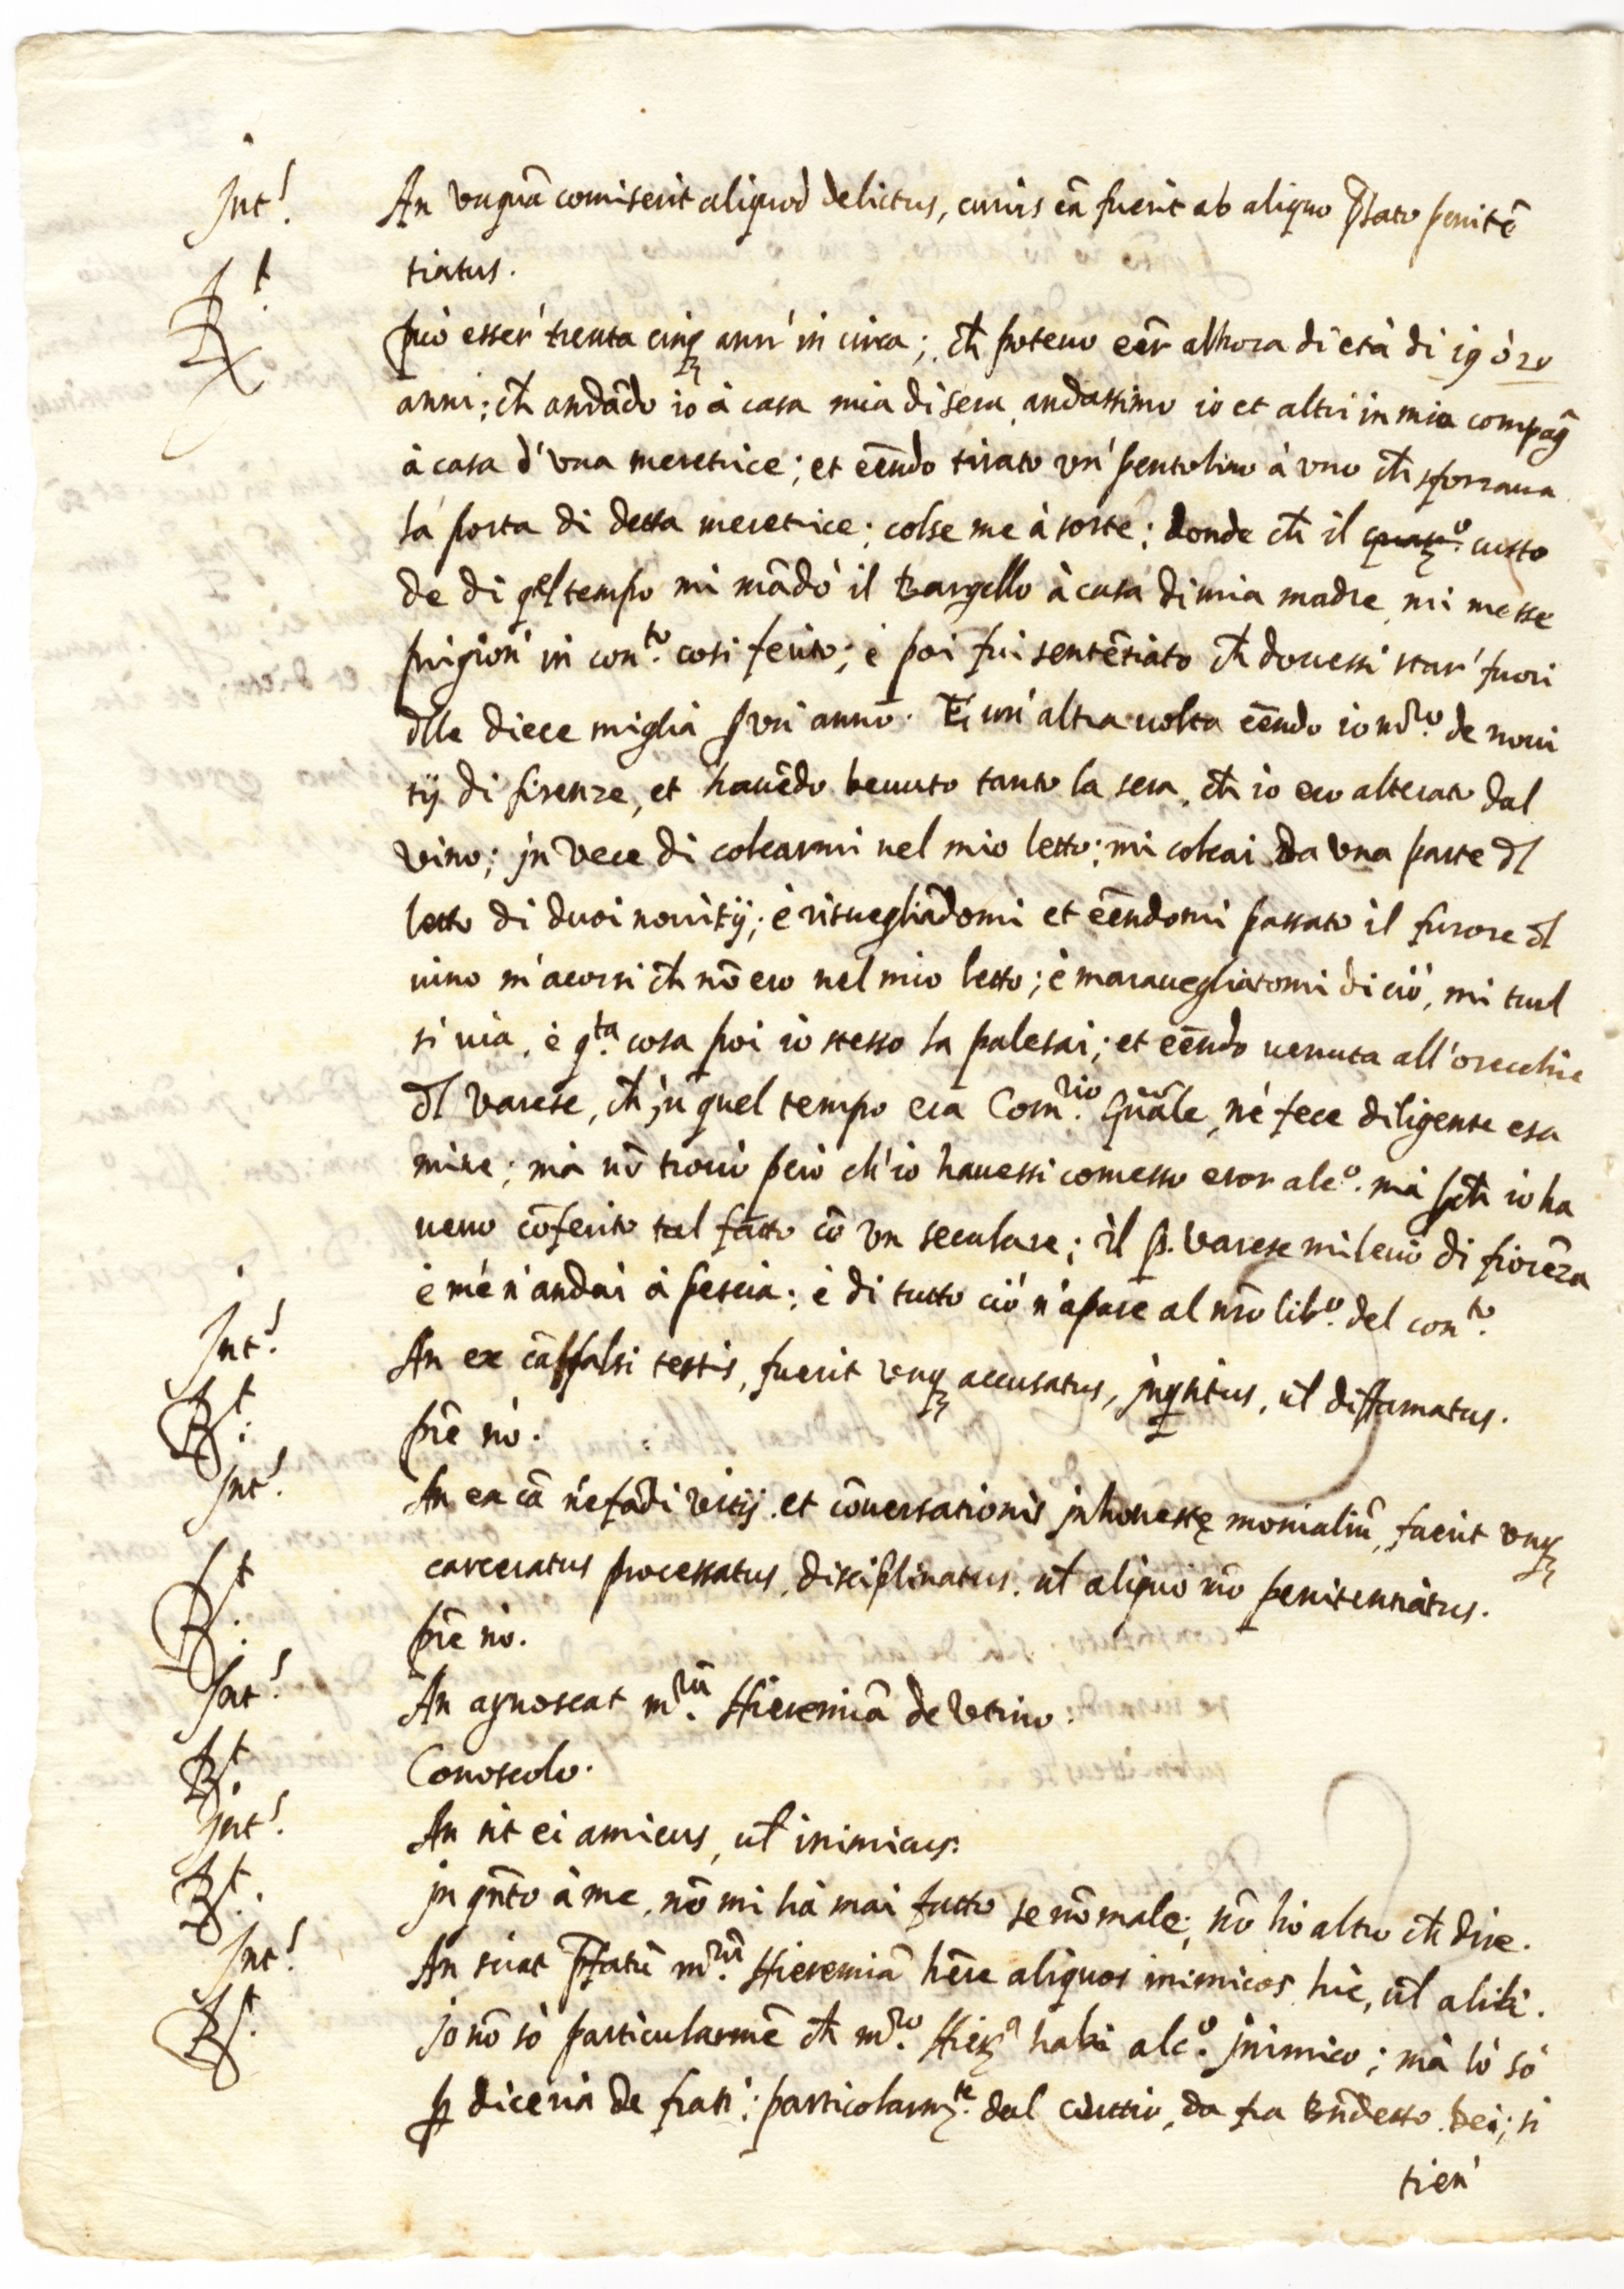 Int.s An unquã comiserit aliquod delictus, cuius cã fuerit ab aliquo p̃lato penitẽ
tiatus.
R.t può esser' trenta cinq; anni in circa; ch̃ potevo eer̃ alhora di età di 19 ò 20
anni; ch̃ andãdo io à casa mia di sera, andassimo io et altri in mia compag̃
à casa d'una meretrice; et eẽndo tirato un' pentolino à uno ch̃ sforzaua
la' porta di detta meretrice; colse me à sorte; donde ch̃ il custo
de di q̃l tempo mi mãdò il Bargello à casa di mia madre, mi messe
prigion' in con.to così ferito; è poi fui sentẽtiato ch̃ douessi star' fuori
dlle diece miglia p un' anno. Et un' altra uolta eẽndo io m̃.ro de noui
tij di firenze, et hauẽdo beuuto tanto la sera, ch̃ io ero alterato dal
vino; in vece di colcarmi nel mio letto; mi colcai da una parte dl
letto di duoi nouitij; è risuegliãdomi et eẽndomi passato il furore dl
uino m'acorsi ch̃ nõ ero nel mio letto; è marauegliatomi di ciò, mi tul
si uia, è q.ta cosa poi io stesso la palesai; et eẽndo uenuta all'orecchie
dl Varese, ch̃ in quel tempo era Com.rio Gñale, nè fece diligente esa
mine; mà nõ trouò però ch'io hauessi comesso eror alc.o mà pch̃ io ha
ueuo cõferito tal fatto cõ un seculare; il p. Varese mi leuò di fiorẽza
è me n'andai à pescia; è di tutto ciò n'apare al nr̃o lib.o del con.to
Int.s An ex cã falsi testis, fuerit unq; accusatus, inq̃situs, ul̃ diffamatus.
R.t p̃re nò.
Int.s An ea cã nefãdi vitij et cõuersationis inhonestę monialiũ, fuerit unq;
carceratus processatus, disciplinatus, ul̃ aliquo mõ penitentiatus.
R.t p̃re nò.
Int.s An agnoscat m.rũ Hieremiã de Utino.
R.t Conoscolo.
Int.s An sit ei amicus, ul̃ inimicus.
R.t in qñto à me, nõ mi hà mai fatto se nõ male; nõ hò altro ch̃ dire.
Int.s An sciat p̃fatũ m.rũ Hieremiã hẽre aliquos inimicos hic, ul̃ alibi.
R.t Io nõ sò particularmẽ ch̃ m.ro Hier.a habi alc.o inimico; mà lò sò
p diceria de frati; particolarm.te dal da fra Bñdetto Bei; si
tien'